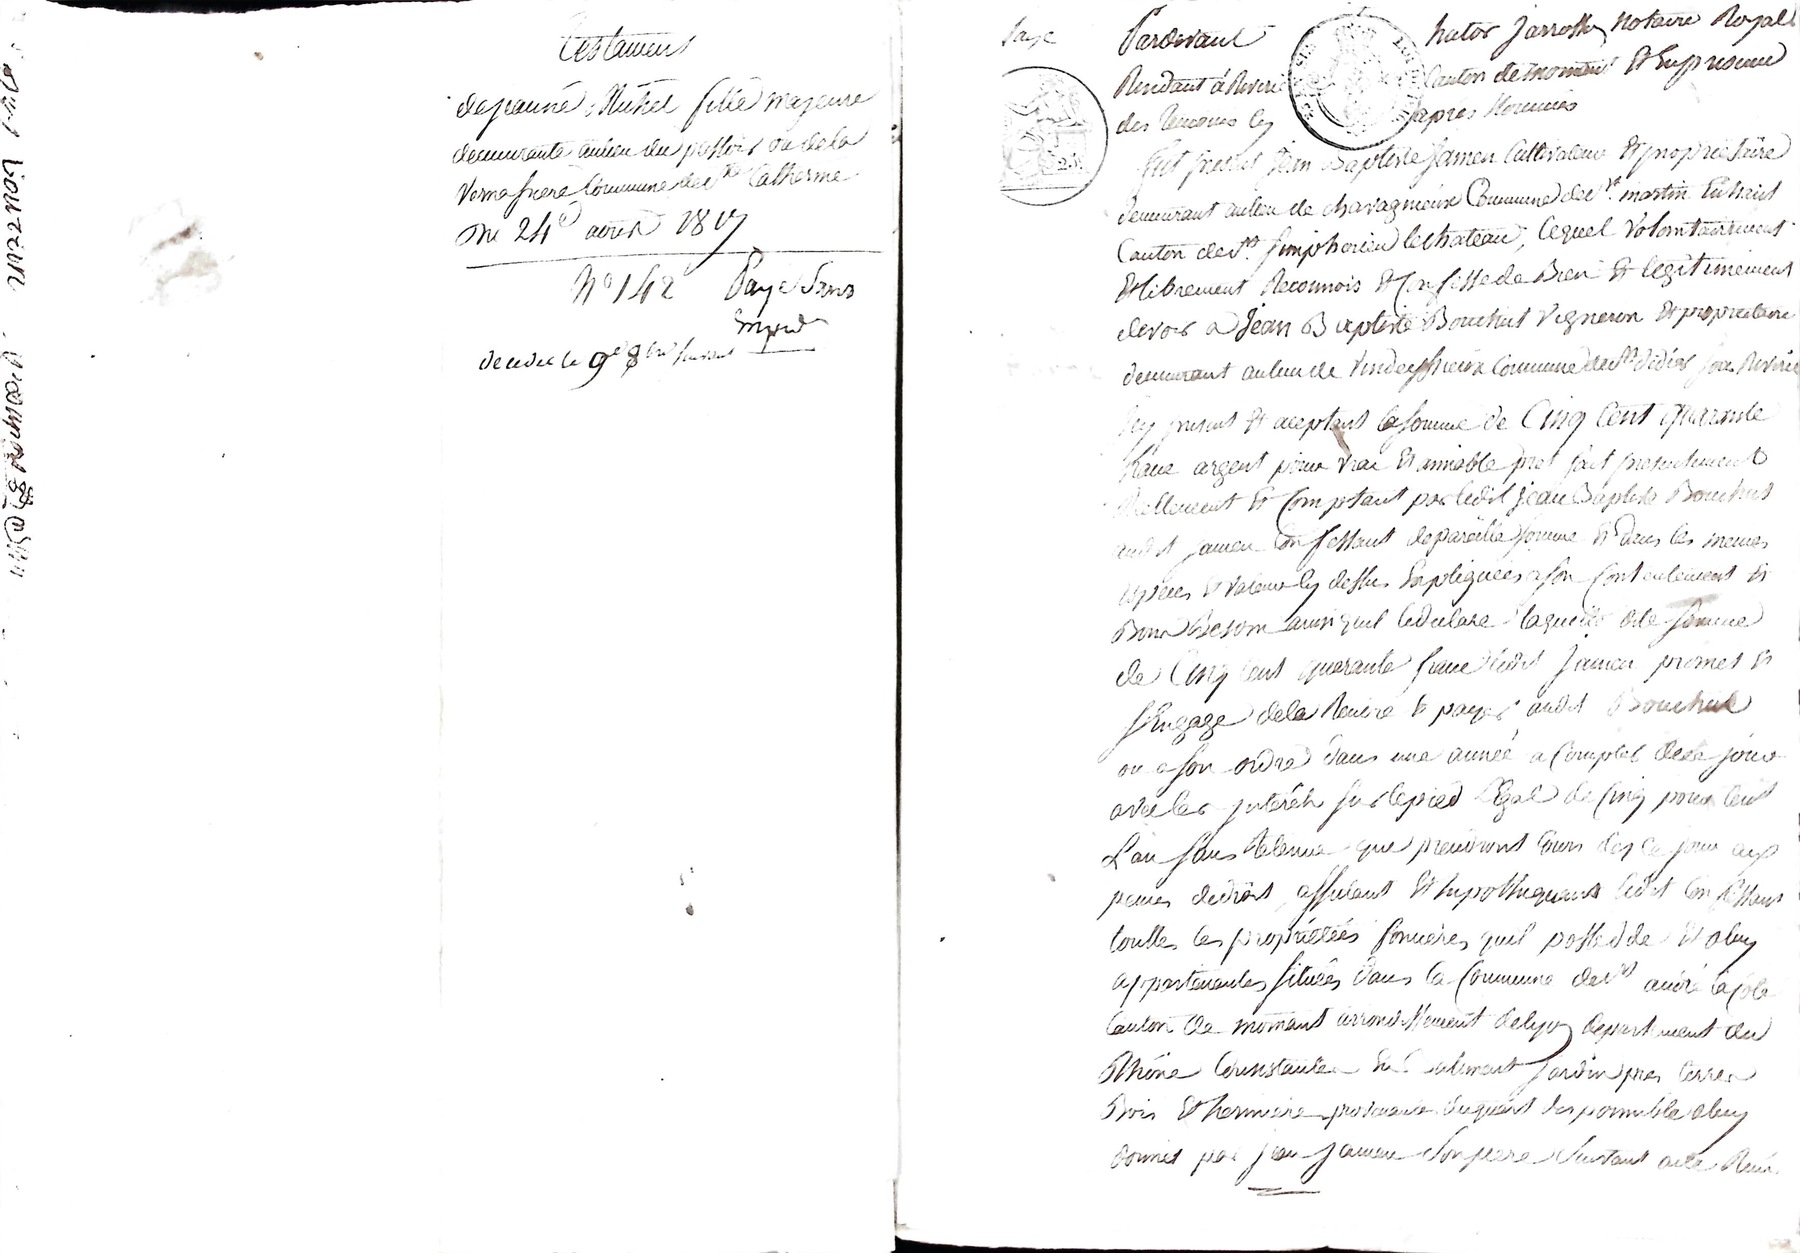 Testament
de jeanne Michel fille majeure
demeurante au lieu du pressoir ou de la
Commune de Ste Catherine
Du 24e avril 1817
No 142 Paye Sans
décédée le 9e 8bre suivant
Paye
Pardevant hator Jarrosson notaire Royal
Residant à Riverie Canton de mornant Et En presence
des temoins cy apres nommés
fut present Jean Baptiste Jamen Cultivateur Et proprietaire
demeurant au lieu de chavagnieux Commune de St. martin En haut
Canton de St. Simphorien le chateau, lequel Volontairement
Et librement Reconnois Et Confesse de Bien Et legitimement
devoir a Jean Baptiste Bouchut Vigneron Et proprietaire
demeurant au lieu de Commune de St didier sous Riverie
icy present Et aceptant la somme de Cinq Cent quarante
franc argent pour vrai Et amiable pret fait presentement
Reellement Et Comptant par ledit jean Baptiste Bouchut
audit jamen Confessant de pareille somme Et dans les memes
especes Et valeur cy dessus Expliquées a son Contentement Et
Bon Besoin ainsi quil le declare laquelle dite somme
de Cinq cent quarante franc ledit Jamen promet Et
s'Engage de la Rendre Et payer audit Bouchut
ou a son ordre dans une année a Compter de ce jour
avec les intérêts sur le pied légal de Cinq pour Cent
L'an sans Retenue que prendront Cours des ce jour aux
peines de droit, affectant Et hypothequant ledit Confessant
touttes les propriétées foncieres quil possedde Et a luy
appartenantes situées dans la Commune de St andré la côte
Canton de mornant arrondissement de lyon departement du
Rhône Consistantes En batiment Jardin pres terres
Bois Et hermiere provenants du quart disponnible a luy
donnés par jean Jamen Son pere Suivant acte Recu